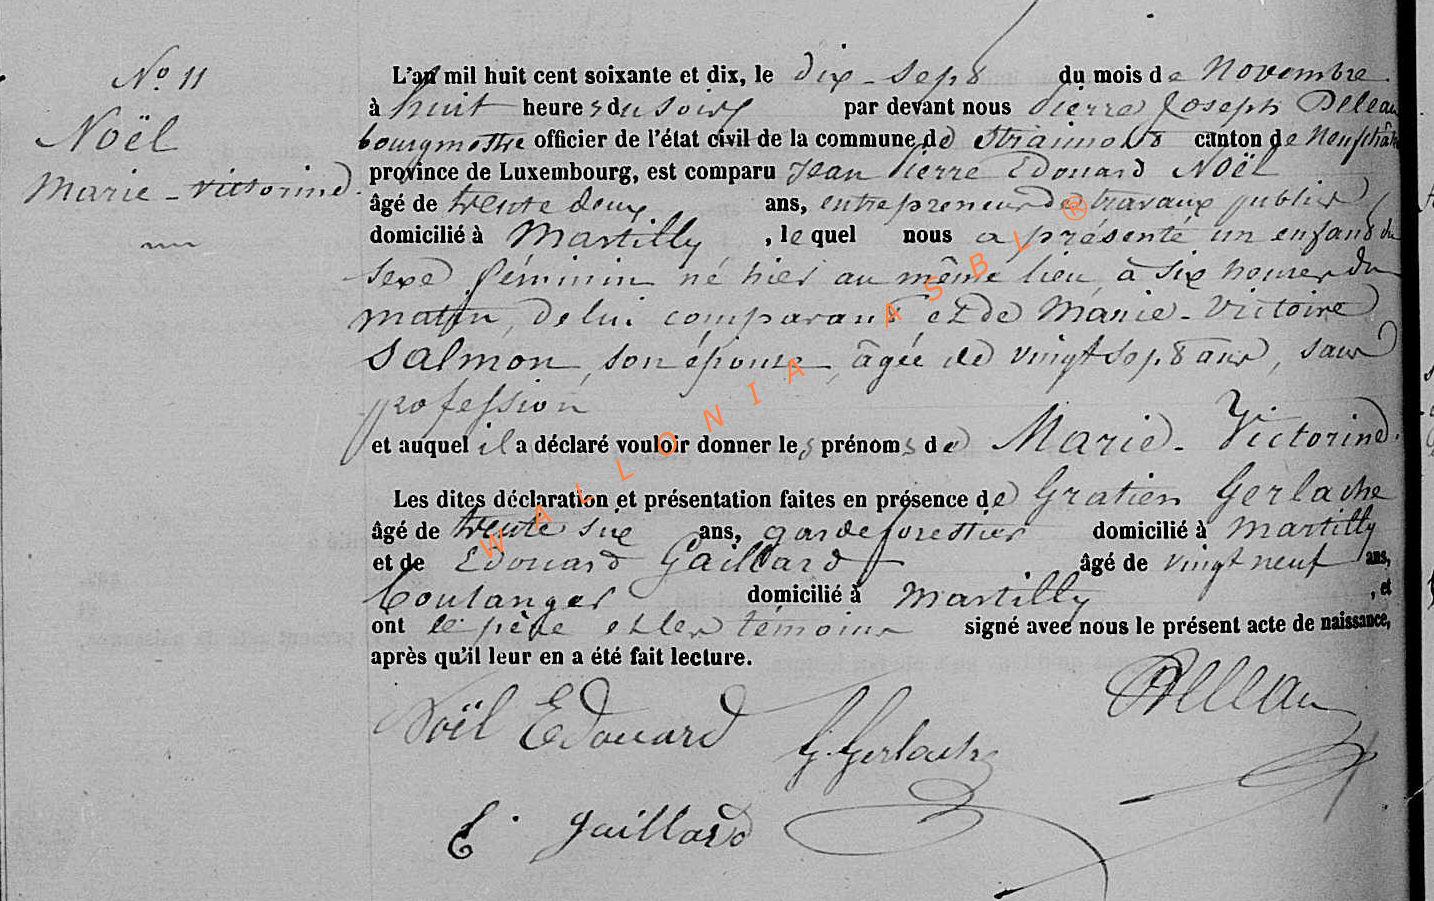 No 11
Noël
Marie-Victorine
L'an mil huit cent soixante et dix, le dix-sept du mois de Novembre
à huit heures du soir, par devant nous Pierre Joseph Delleau
bourgmestre officier de l'état civil de la commune de Straimont canton de Neufchâteau
province de Luxembourg, est comparu Jean Pierre Edouard Noël
âgé de trente deux ans, entrepreneur de travaux publics
domicilié à Martilly, le quel nous a présenté un enfant du
sexe féminin né hier au même lieu, à six heures du
matin, de lui comparant et de Marie-Victoire
Salmon, son épouse, âgée de vingt sept ans, sans
profession
et auquel il a déclaré vouloir donner les prénoms de Marie-Victorine.
Les dites déclaration et présentation faites en présence de Gratien Gerlache
âgé de trente six ans, garde forestier domicilié à Martilly
et de Edouard Gaillard âgé de vingt neuf ans,
boulanger domicilié à Martilly, et
ont le père et les témoins signé avec nous le présent acte de naissance,
après qu'il leur en a été fait lecture.
Noël Edouard
G. Gerlache
Delleau
E. Gaillard
WALLONIA ASBL ®